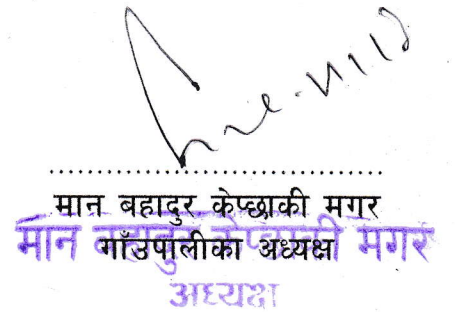 मान बहादुर केप्छाकी मगर
गाँउपालीका अध्यक्ष
मान बहादुर केप्छाकी मगर
अध्यक्ष